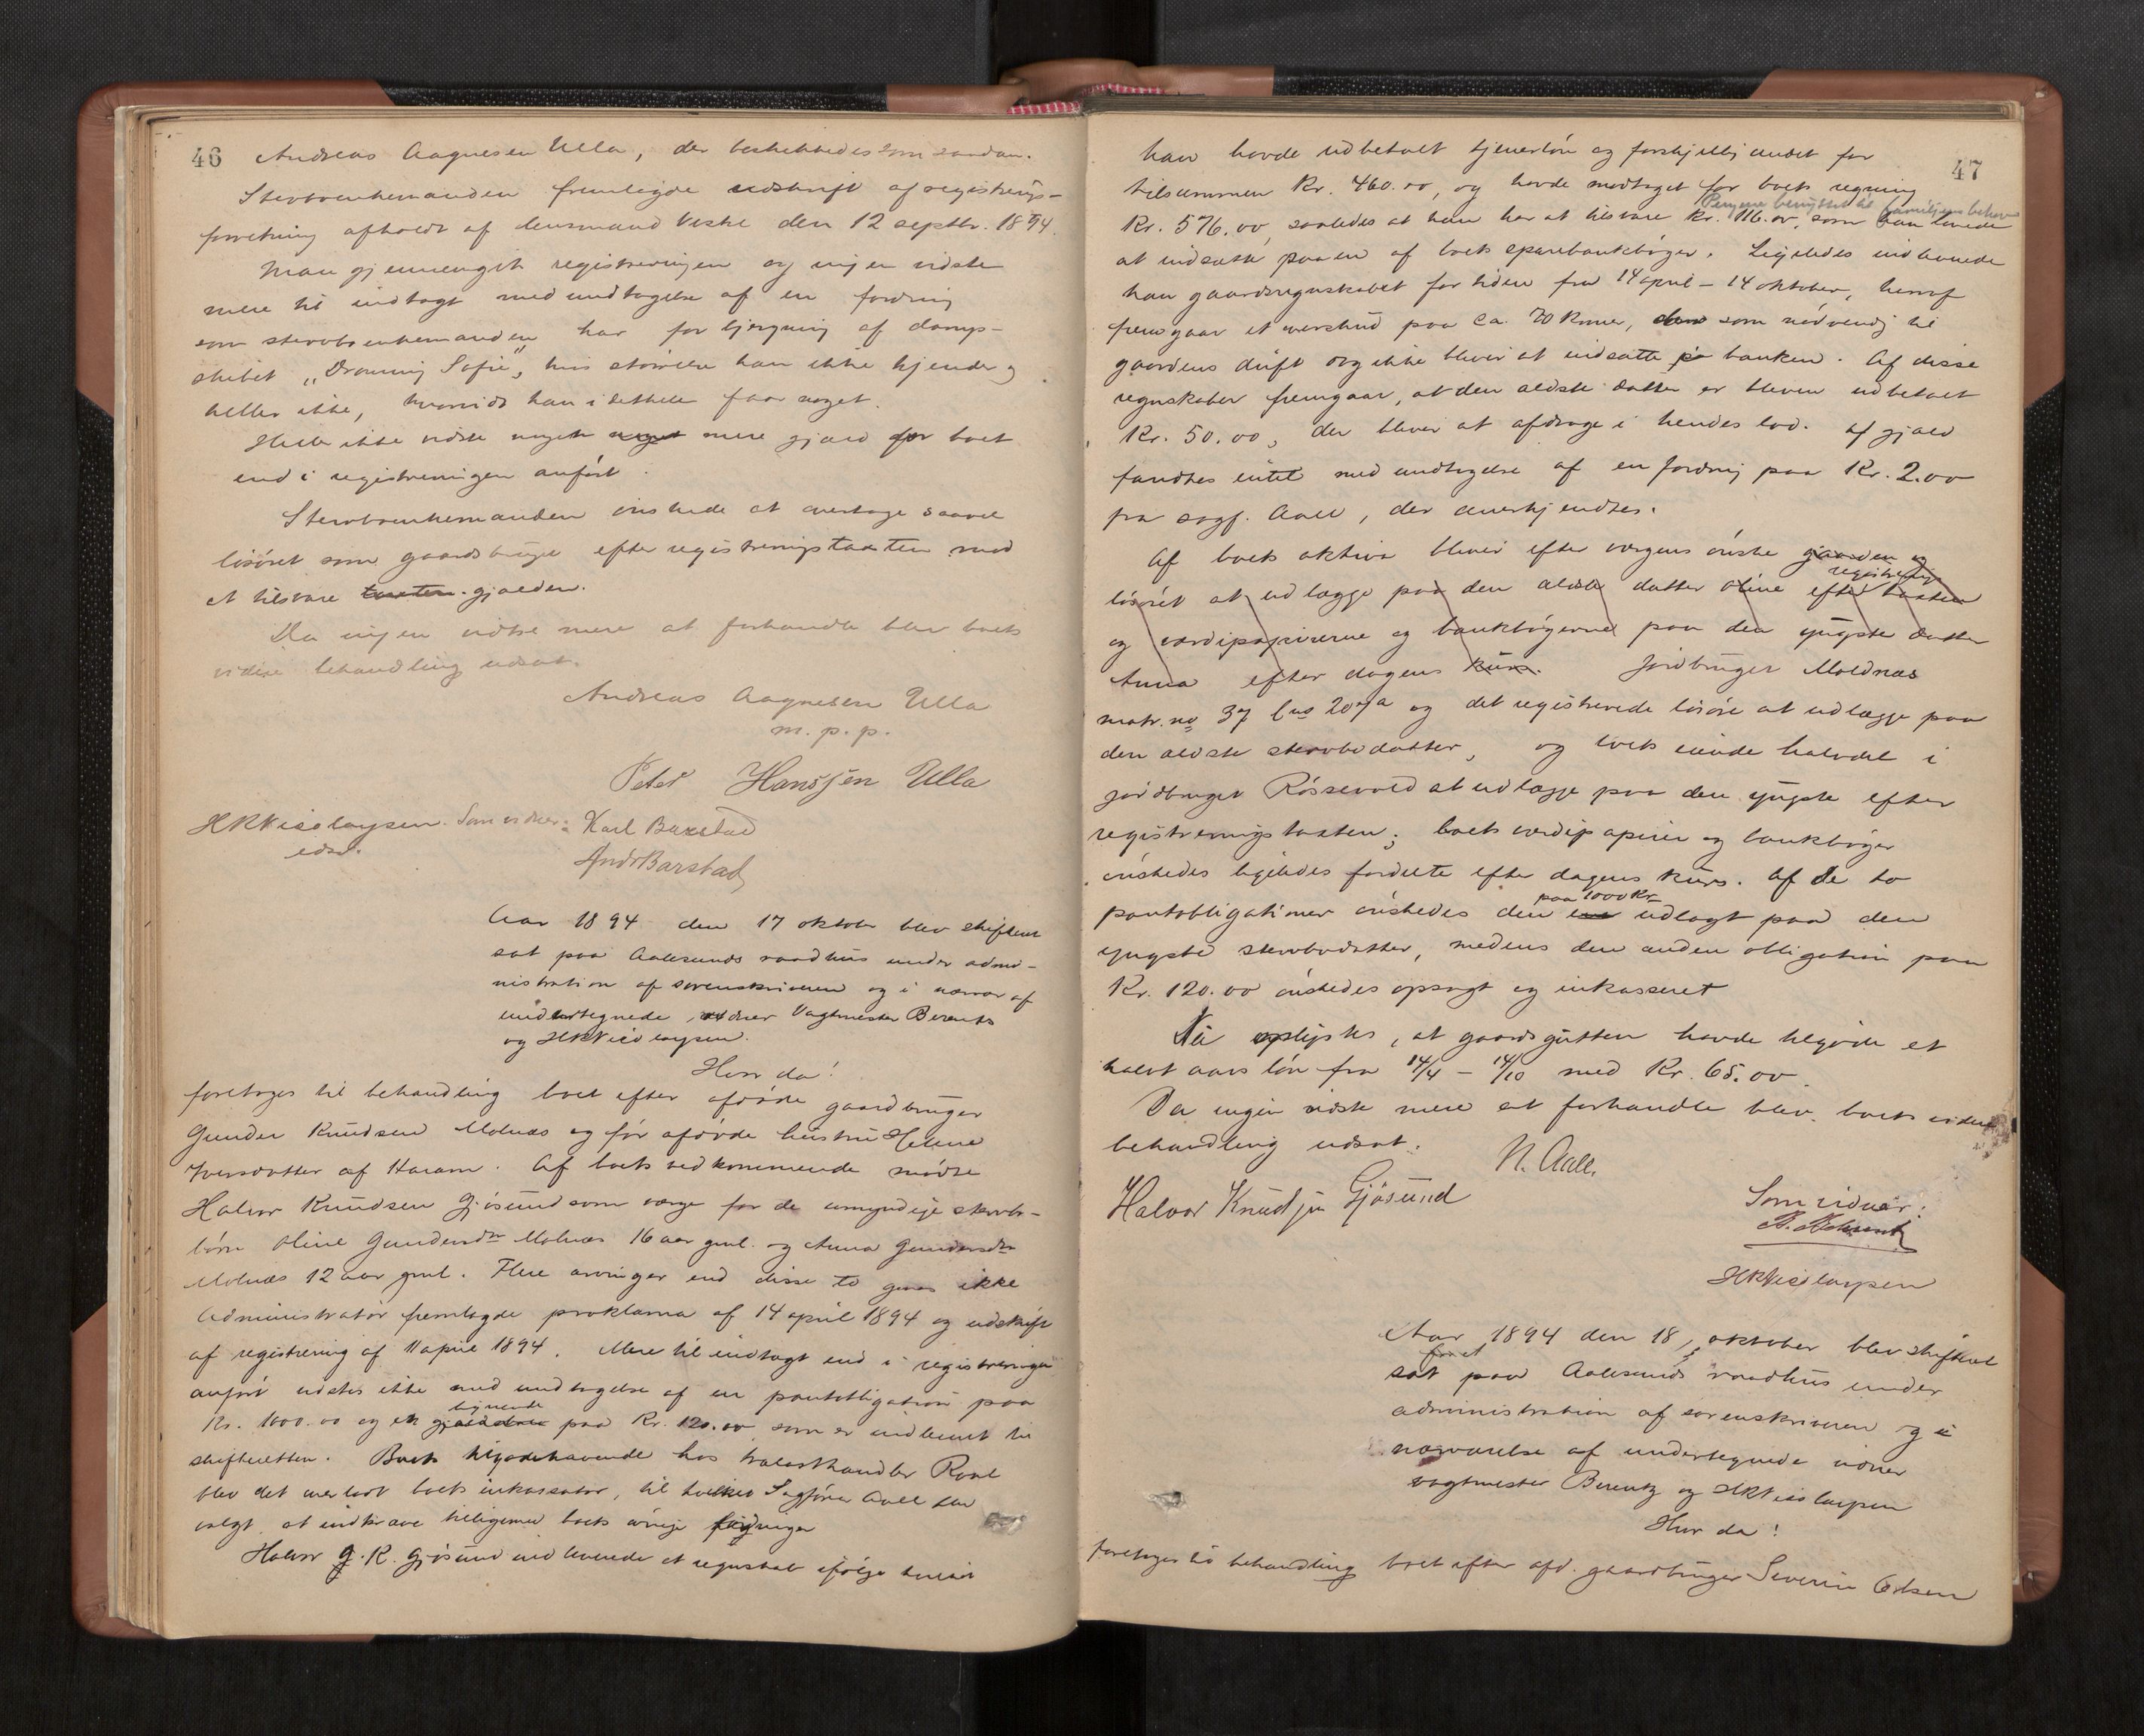 46
Andreas Aagnesen Ulla, der beskikkedes som saadan.
Stervboenkemanden fremlagde udskrift af registrerings-
forretning afholdt af lensmand Veske den 12 septbr. 1894.
Man gjennemgik registreringen og ingen vidste
mere til indtægt med undtagelse af en fordring
som stervboenkemanden har for bjergning af damp-
skibet "Dronning Sofie", hvis størrelse han ikke kjender og
heller ikke, hvorvidt han i det hele faar noget.
Heller ikke vidste nogen noget mere gjæld for boet
end i registreringen anført.
Stervboenkemanden ønskede at overtage saavel
løsøret som gaardsbruget efter registreringstaxten mod
at tilsvare taxten gjælden.
Da ingen vidste mere at forhandle blev boets
videre behandling udsat.
Andreas Aagnesen Ulla
m. p. p.
Peter Hanssen Ulla
Som vidner: Karl Barstad
edsv.
Andr Barstad
Aar 1894 den 17 oktober blev skifteret
sat paa Aalesunds raadhus under admi-
nistration af sorenskriveren og i nærvær af
undertegnede vidner Vagtmester Berentz
og
Hvor da!
foretoges til behandling boet efter afdøde gaardbruger
Gunder Knudsen Molnæs og før afdøde hustru Helene
Iversdatter af Haram. Af boets vedkommende mødte
Halvor Knudsen Gjøsund som værge for de umyndige stervbo-
børn Oline Gundersdtr Molnæs 16 aar gml. og Anna Gundersdtr
Molnæs 12 aar gml. Flere arvinger end disse to gives ikke
Administrator fremlagde proklama af 14 april 1894 og udskrift
af registrering af 11 april 1894. Mere til indtægt end i registreringen
anført vidstes ikke med undtagelse af en pantobligation paa
lignende
Kr. 1000.00 og en paa Kr. 120.00 som er indleveret til
skifteretten. Boets tilgodehavende hos trælasthandler Roal
blev det overladt boets inkassator, til hvilket Sagfører Aall blev
valgt, at indkræve tilligemed boets øvrige fordringer
Halvor G. K. Gjøsund indleverede et regnskab ifølge hvilket
47
han havde udbetalt tjenerløn og forskjelligt andet for
tilsammen Kr. 460.00, og havde modtaget for boets regning
Pengene benyttet til familjens behov
Kr. 576.00, saaledes at han har at tilsvare Kr. 116.00, som han lovede
at indsætte paa en af boets sparebankbøger. Ligeledes indleverede
han gaardsregnskabet for tiden fra 14 april - 14 oktober, hvoraf
fremgaar et overskud paa ca. 70 kroner, som nødvendig til
gaardens drift og ikke bliver at indsætte paa banken. Af disse
regnskaber fremgaar, at den ældste datter er bleven udbetalt
Kr. 50.00, der bliver at afdrage i hendes lod. Af gjæld
fandtes intet med undtagelse af en fordring paa Kr. 2.00
fra sagf. Aall, der anerkjendtes.
Af boets aktiva bliver efter værgens ønske gaarden og
registrerings
løsøret at udlægge paa den ældste datter Oline efter taxten
og værdipapirerne og bankbøgerne paa den yngste datter
Anna efter dagens kurs. Jordbruget Moldnæs
matr. no 37 lno 207a og det registrerede løsøre at udlægge paa
den ældste stervbodatter, og boets eiende halvdel i
jordbruget Røssevold at udlægge paa den yngste efter
registreringstaxten; boets værdipapirer og bankbøger
ønskedes ligeledes fordelte efter dagens kurs. Af de to
paa 1000 Kr
pantobligationer ønskedes den ene udlagt paa den
yngste stervbodatter, medens den anden obligation paa
Kr. 120.00 ønskedes opsagt og inkasseret
oplystes, at gaardsgutten havde tilgode et
halvt aars løn fra 14/4 - 14/10 med Kr. 65.00.
Da ingen vidste mere at forhandle blev boets videre
behandling udsat.
N. Aall.
Halvor Knudsen Gjøsund
Som vidner:
Aar 1894 den 18 oktober blev skifteret
sat paa Aalesunds raadhus under
administration af sorenskriveren og i
nærværelse af undertegnede vidner
vagtmester Berentz og
Hvor da!
foretoges til behandling boet efter afd. gaardbruger Severin Olsen